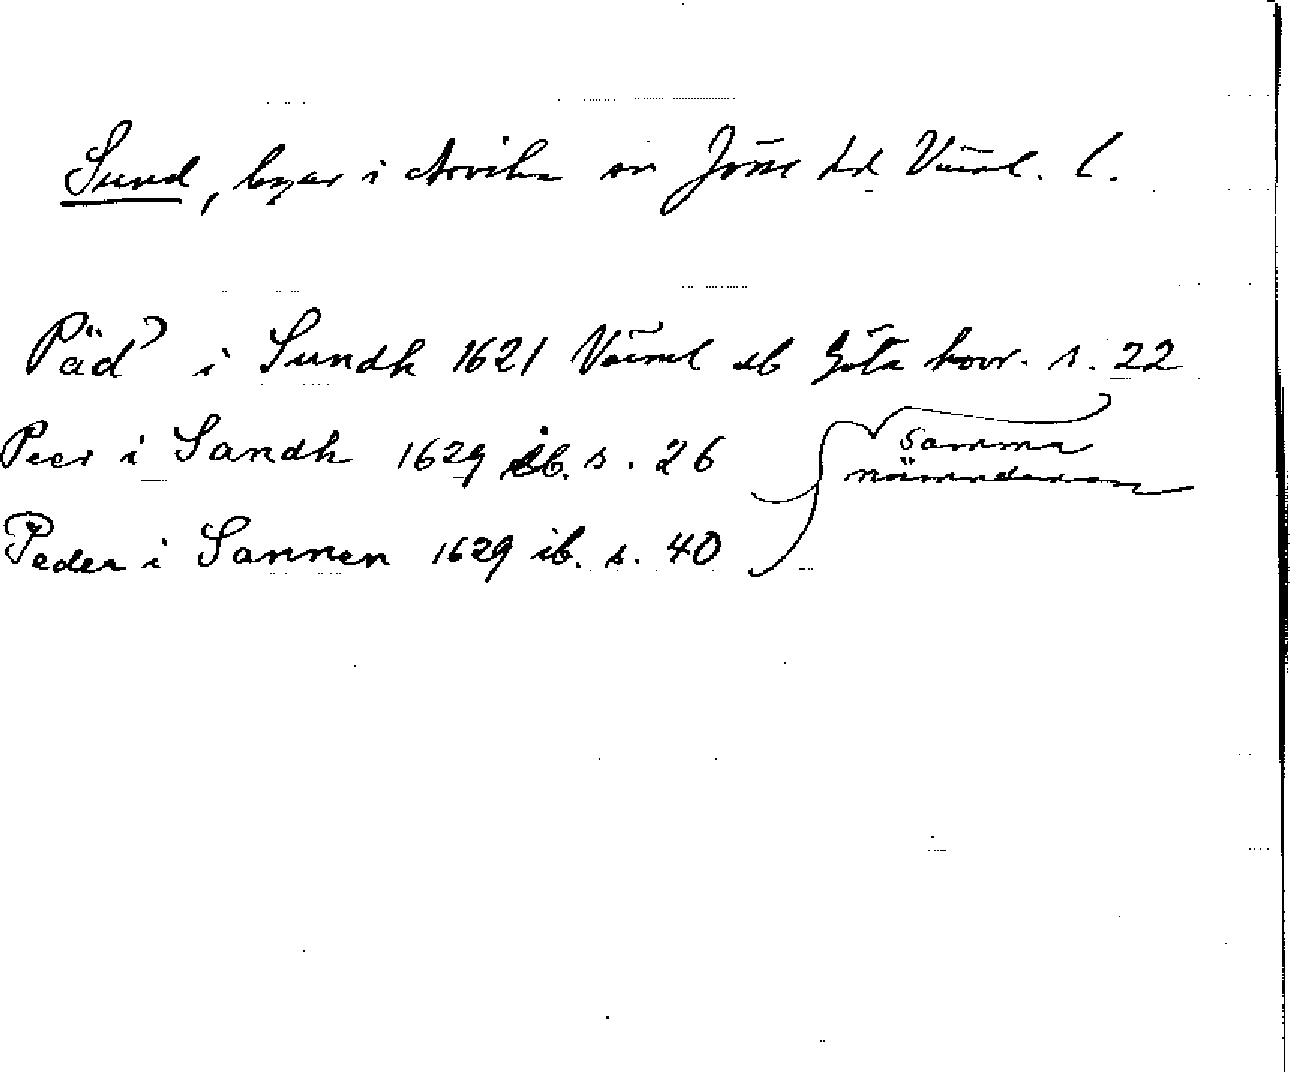 Sund, byar i Arvika sn Jösse hd Värml. l.
Päd³ i Sundh 1621 Värml db Göta hovr. s. 22
Peer i Sandh 1629 ib. s. 26
samma
nämndeman
Peder i Sannen 1629 ib. s. 40